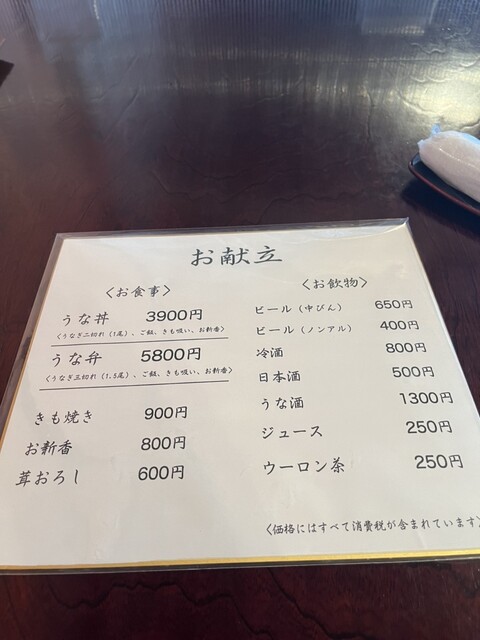 お献立
〈お食事〉
うな丼 3900円
〈うなぎ二切れ（1尾）、ご飯、きも吸い、お新香〉
うな弁 5800円
〈うなぎ三切れ（1.5尾）、ご飯、きも吸い、お新香〉
きも焼き 900円
お新香 800円
茸おろし 600円
〈お飲物〉
ビール（中びん） 650円
ビール（ノンアル） 400円
冷酒 800円
日本酒 500円
うな酒 1300円
ジュース 250円
ウーロン茶 250円
〈価格にはすべて消費税が含まれています〉